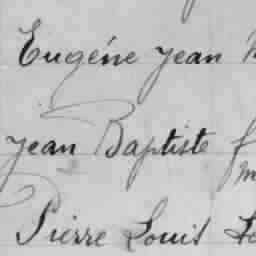 Eugéne Jean
Jean Baptiste
Pierre Louis